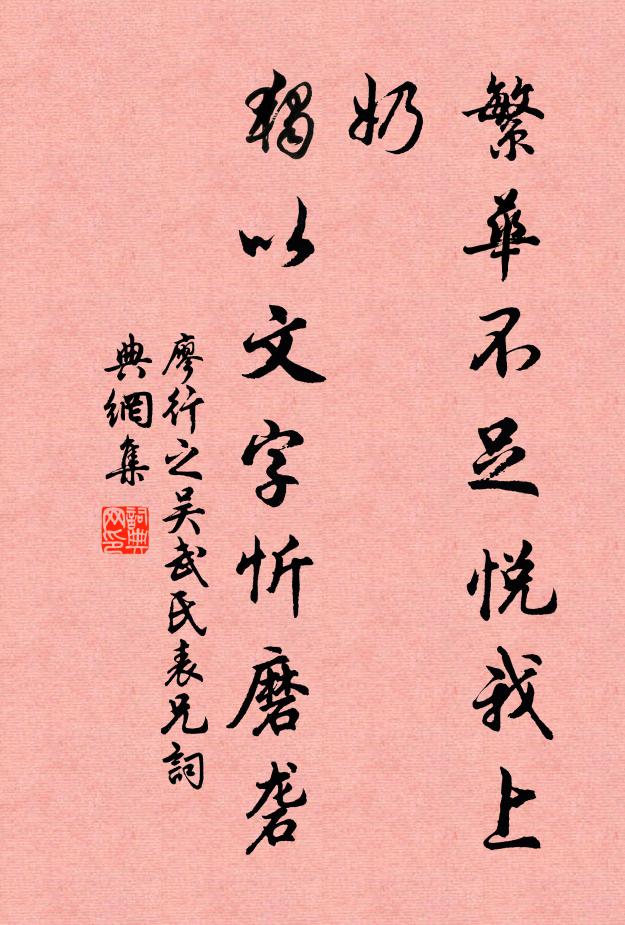 繁華不足悅我上
奶
獨以文字忻磨砻
廖行之吴武氏表兄詞
典網集
詞典网印